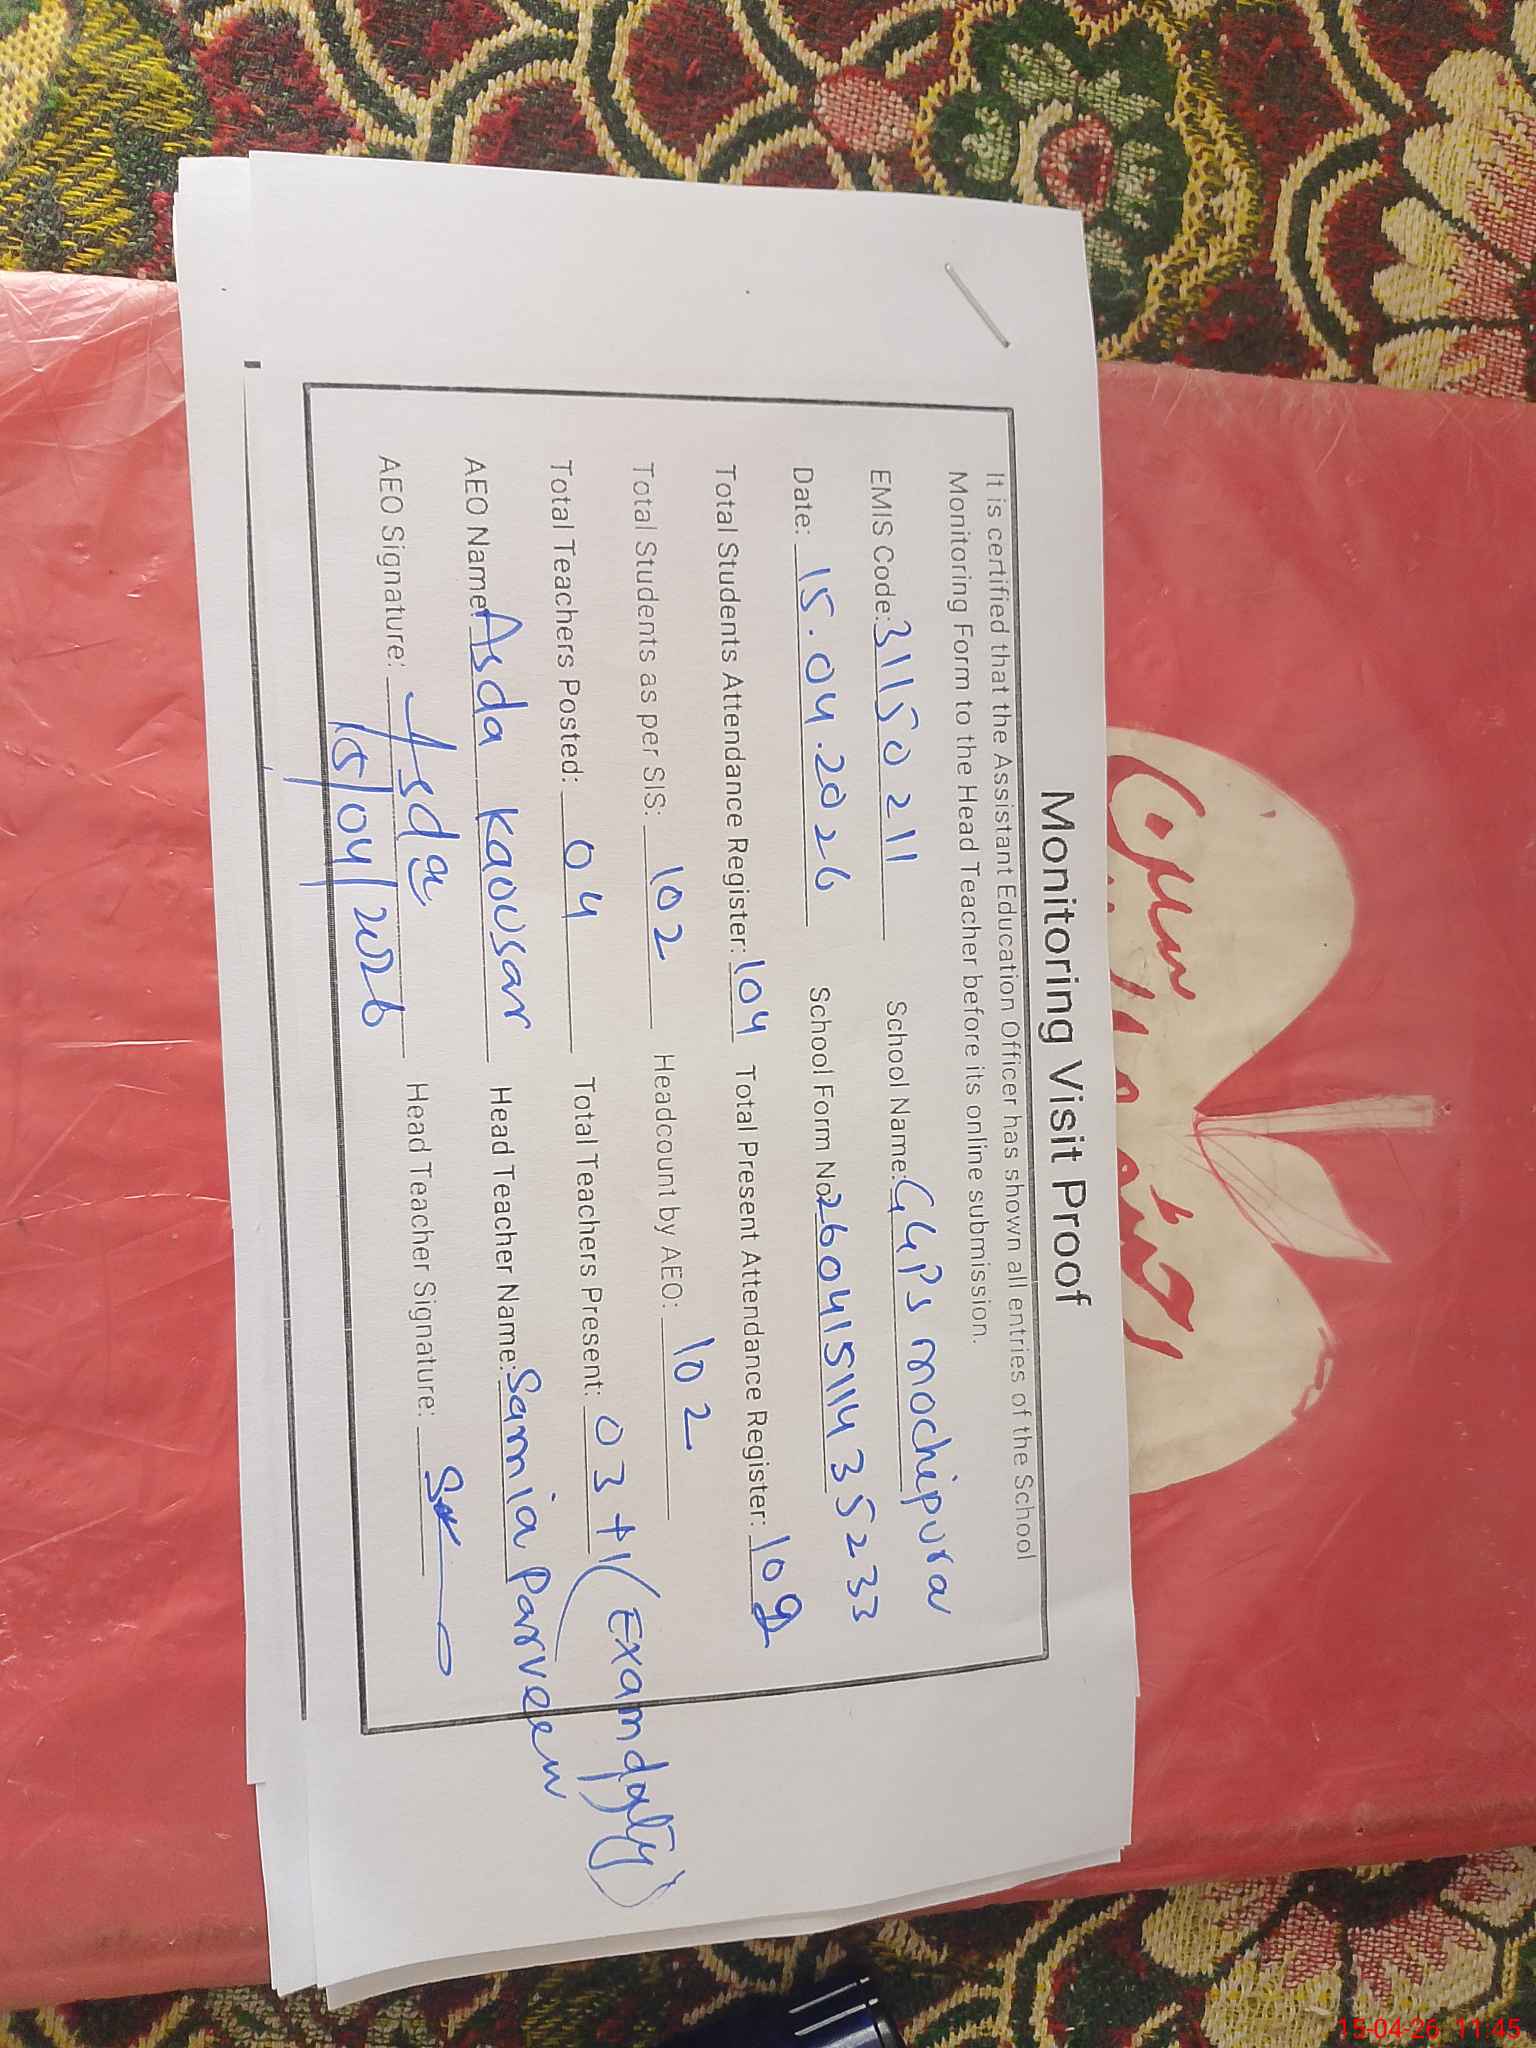 Monitoring Visit Proof
It is certified that the Assistant Education Officer has shown all entries of the School
Monitoring Form to the Head Teacher before its online submission.
EMIS Code: 31150211 School Name: GGPS mochipura
Date: 15.04.2026 School Form No: 26041511435233
Total Students Attendance Register: 104 Total Present Attendance Register: 102
Total Students as per SIS: 102 Headcount by AEO: 102
Total Teachers Posted: 04 Total Teachers Present: 03+1 (Exam duty)
AEO Name: Asda Kaousar Head Teacher Name: Samia Parveen
AEO Signature: Asda Head Teacher Signature:
15/04/2026
15-04-26 11:45